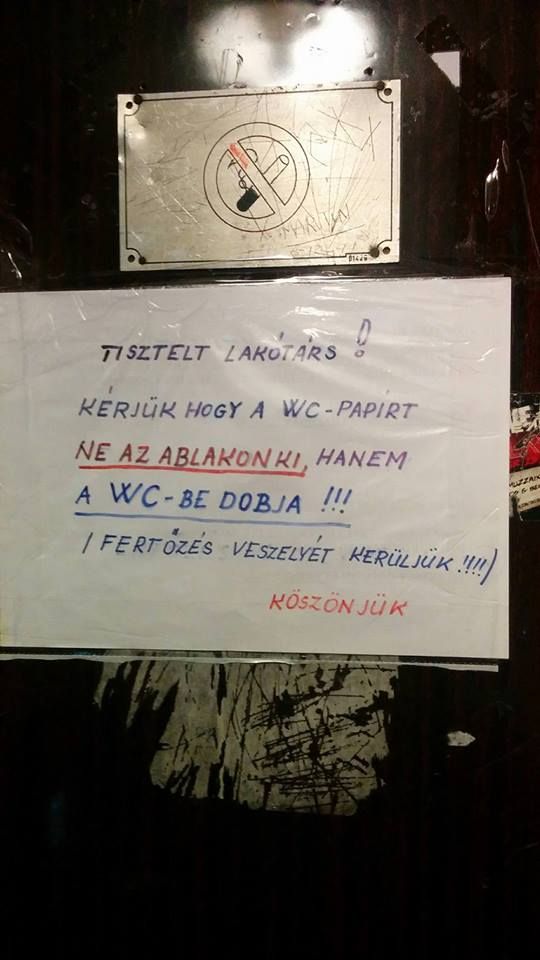 MARTIN
01426
TISZTELT LAKÓTÁRS !
KÉRJÜK HOGY A WC-PAPÍRT
NE AZ ABLAKON KI, HANEM
A WC-BE DOBJA !!!
/ FERTŐZÉS VESZELYÉT KERÜLJÜK !!!!)
KÖSZÖNJÜK